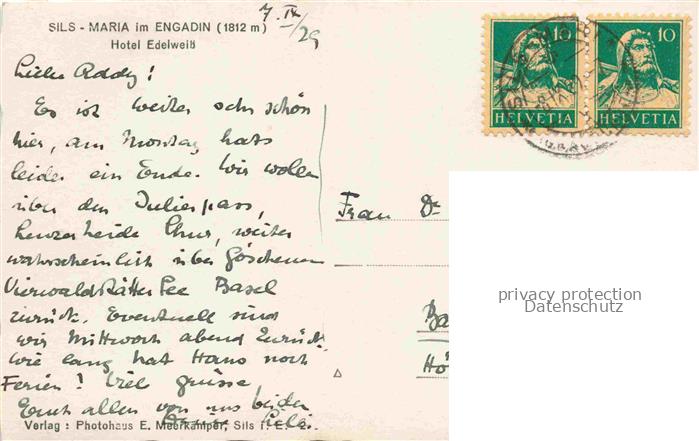 SILS - MARIA im ENGADIN (1812 m)
Hotel Edelweiß
7. IX /29
Liebe Addy!
Es ist weiter sehr schön
hier, am Montag hats
leider ein Ende. Wir wollen
über den Julierpass,
Lenzerheide Chur, weiter
wahrscheinlich über Göschenen
Vierwaldstätter See Basel
zurück. Eventuell sind
wir Mittwoch abend zurück.
Wie lang hat Hans noch
Ferien? Viel grüsse
Euch allen von uns beiden
Verlag: Photohaus E. Meerkämper, Sils i. E. 2.
10 HELVETIA
10 HELVETIA
Frau Dr
Ba
Hö
privacy protection
Datenschutz